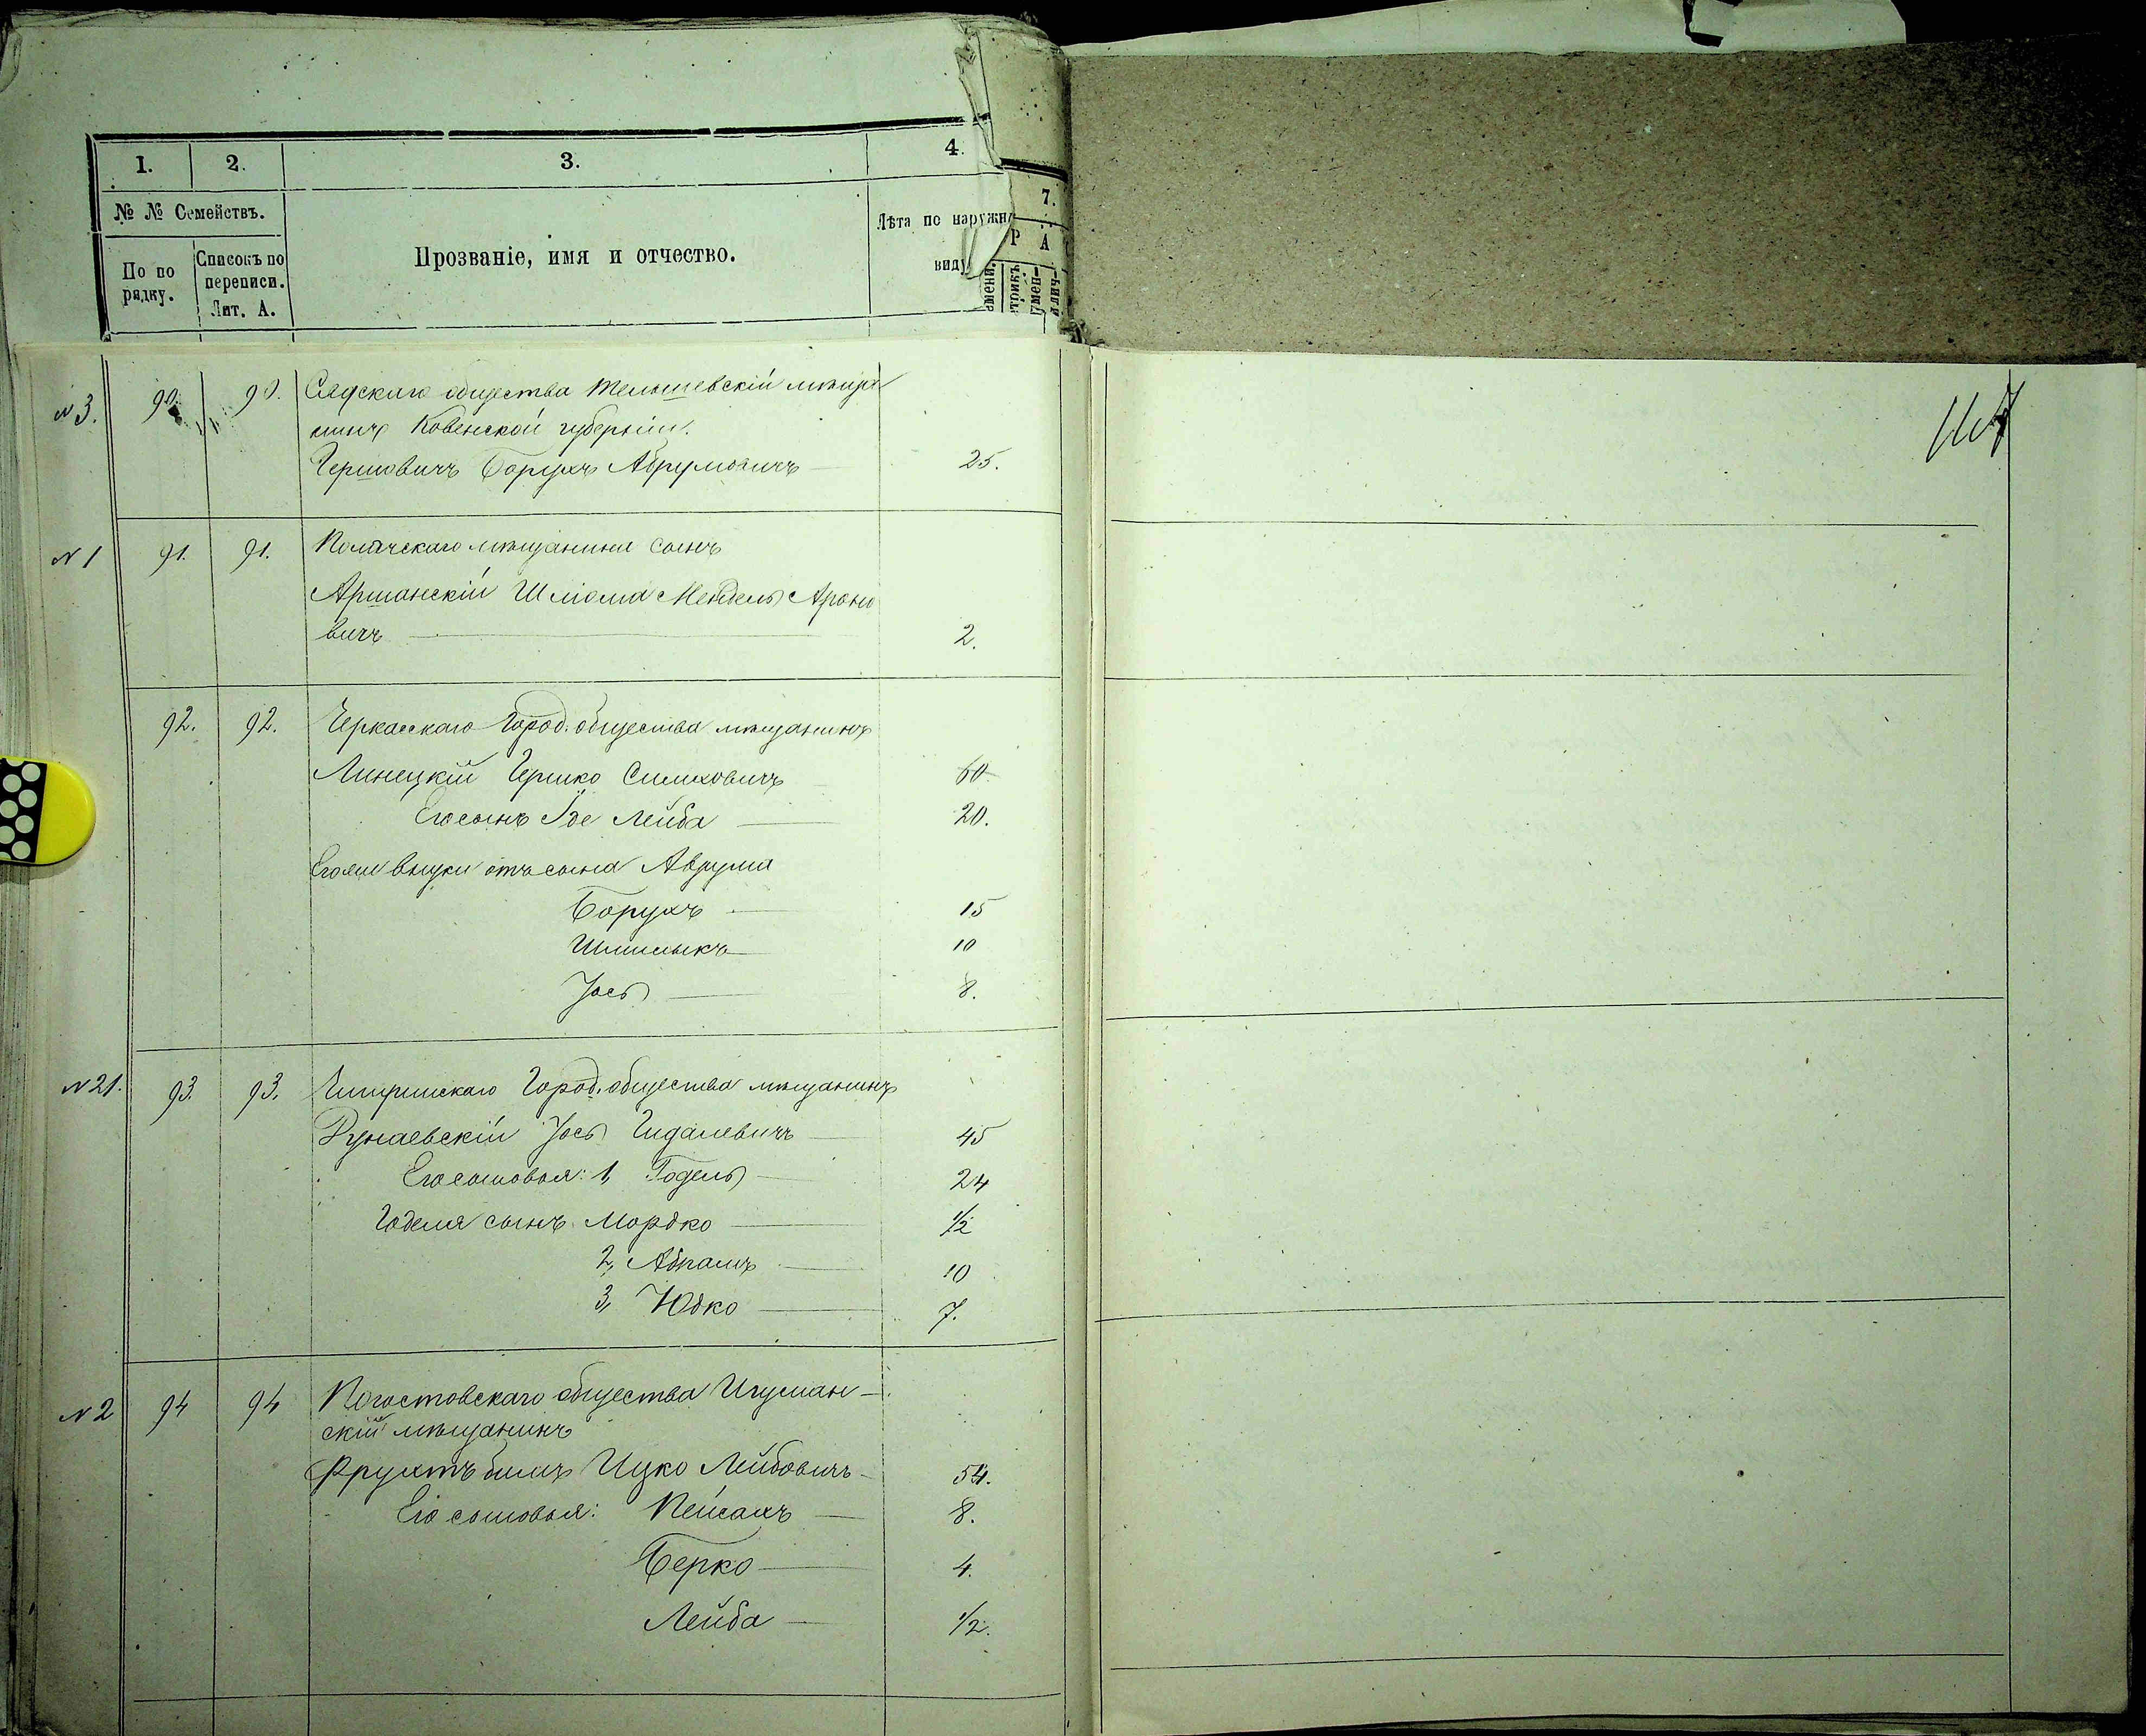 1. 2. 3. 4.
7.
№ № Семействъ.
По по рядку.
Списокъ по переписи. Лит. А.
Прозваніе, имя и отчество.
Лѣта по наружн
виду
Р А
N 3. 90. 90. общества Тельшевскій мѣща
нинъ Ковенской губерніи.
Гершовичъ Борухъ Абрумовичъ 25.
N 1 91. 91. мѣщанина сынъ
Аршанскій Шліома МендельАроно
вичъ 2.
92. 92. Черкасскаго Город. общества мѣщанинъ
Линецкій Гершко Симховичъ 60.
Его сынъ Лейба 20.
Его же внуки отъ сына Аврума
Борухъ 15
Шмилыкъ 10
Іось 8.
N 21. 93. 93. Чигринскаго Город. общества мѣщанинъ
Дунаевскій Іось Гидалевичъ 45
Его сыновья: 1, Годель 24
Годеля сынъ Мордко 1/2
2, Абрамъ 10
3, Юдко 7.
N 2 94 94 Погостовскаго общества Игуман-
скій мѣщанинъ
Фрухтъбимъ Ицко Лейбовичъ 54.
Его сыновья: Пейсахъ 8.
Берко 4.
Лейба 1/2.